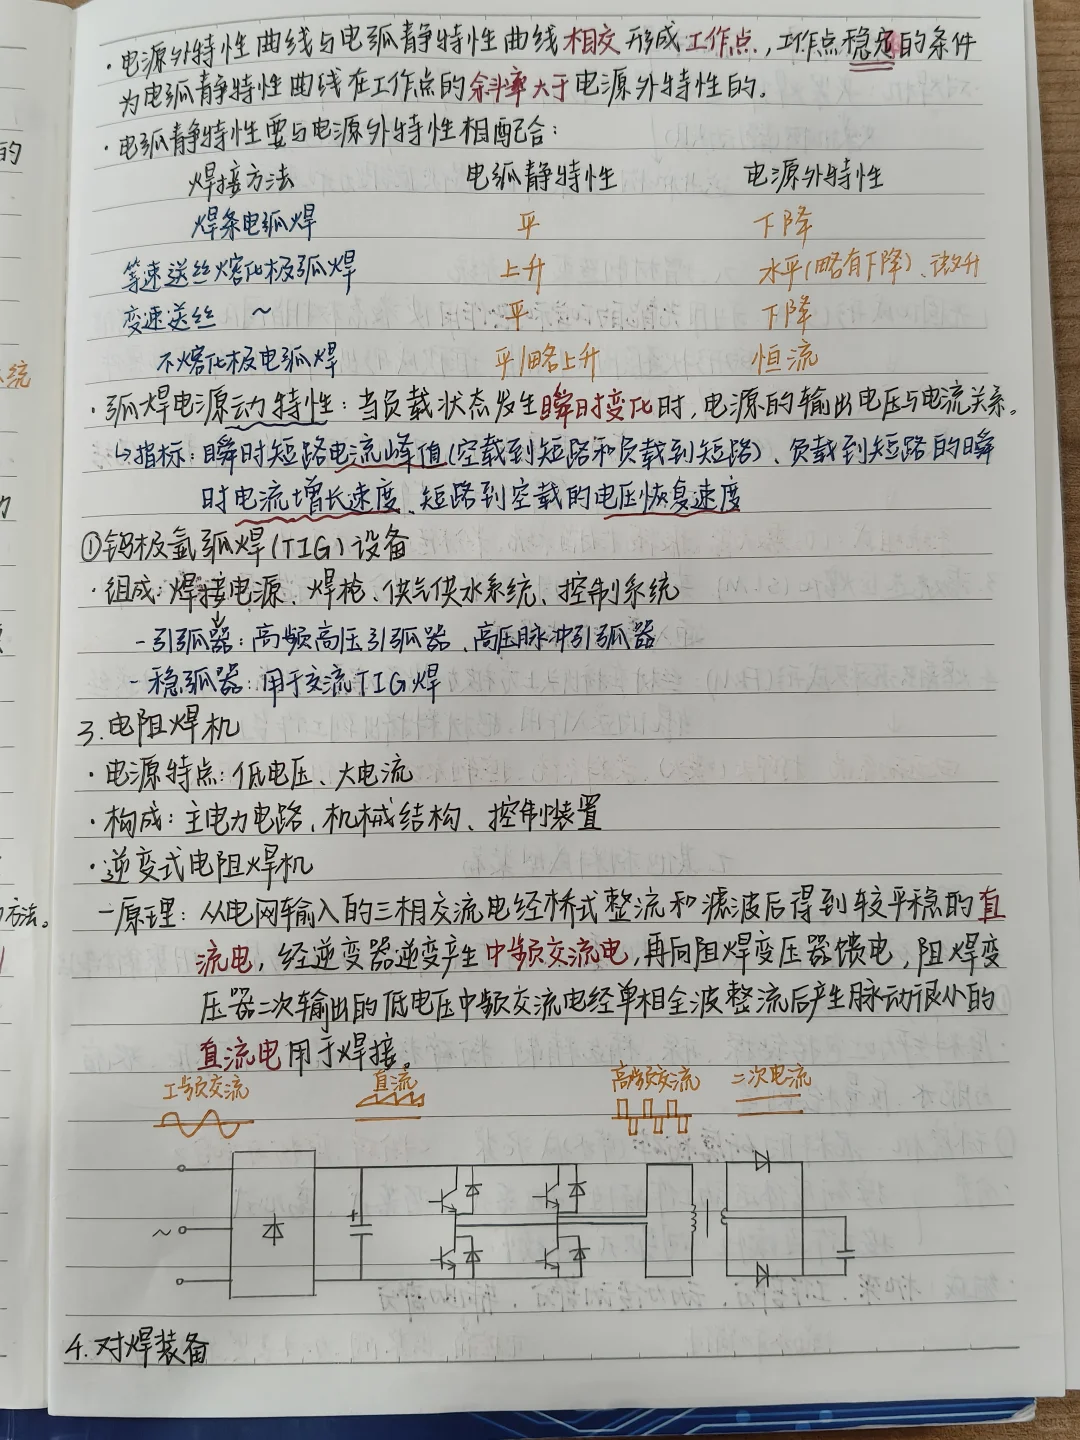 ·电源外特性曲线与电弧静特性曲线相交形成工作点,工作点稳定的条件
为电弧静特性曲线在工作点的斜率大于电源外特性的.
·电弧静特性要与电源外特性相配合:
焊接方法 电弧静特性 电源外特性
焊条电弧焊 平 下降
等速送丝熔化极弧焊 上升 水平(略有下降)、微升
变速送丝 ~ 平 下降
不熔化极电弧焊 平/略上升 恒流
·弧焊电源动特性:当负载状态发生瞬时变化时,电源的输出电压与电流关系。
↳指标:瞬时短路电流峰值(空载到短路和负载到短路)、负载到短路的瞬
时电流增长速度、短路到空载的电压恢复速度
①钨极氩弧焊(TIG)设备
·组成:焊接电源、焊枪、供气供水系统、控制系统
-引弧器:高频高压引弧器、高压脉冲引弧器
-稳弧器:用于交流TIG焊
3.电阻焊机
·电源特点:低电压、大电流
·构成:主电力电路、机械结构、控制装置
·逆变式电阻焊机
-原理:从电网输入的三相交流电经桥式整流和滤波后得到较平稳的直
流电,经逆变器逆变产生中频交流电,再向阻焊变压器馈电,阻焊变
压器二次输出的低电压中频交流电经单相全波整流后产生脉动很小的
直流电用于焊接。
工频交流 直流 高频交流 二次电流
+
~
4.对焊装备
的
统
方法。